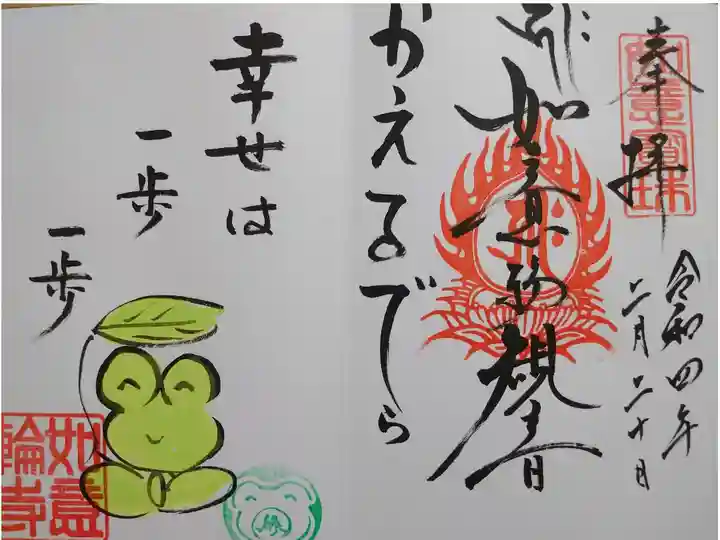 奉拝
如意寳珠
令和四年
二月二十日
如意輪観音
かえるでら
幸せは
一歩
一歩
如意
輪寺